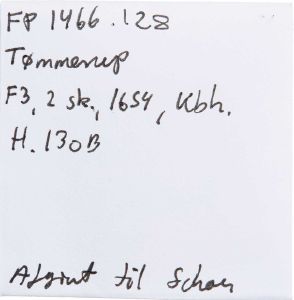 FP 1466.128
Tømmerup
F3, 2 sk., 1654, Kbh.
H. 130B
Afgivet til Schou